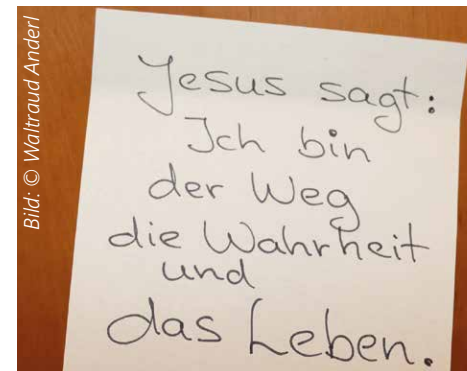 Bild: © Waltraud Anderl
Jesus sagt:
Ich bin
der Weg
die Wahrheit
und
das Leben.